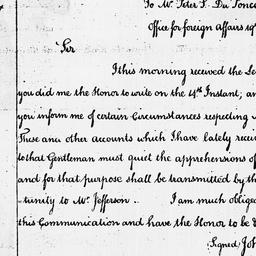 To Mr. Peter S. Du Ponce
Office for foreign Affairs 19
Sir
I this morning received the Le
you did me the Honor to write on the 4th Instant; an
you inform me of certain Circumstances respecting
These and other accounts which I have lately recei
to that Gentleman must quiet the apprehensions of
and for that purpose shall be transmitted by th
-tunity to Mr. Jefferson.. I am much oblige
this Communication and have the Honor to be &
Signed Joh